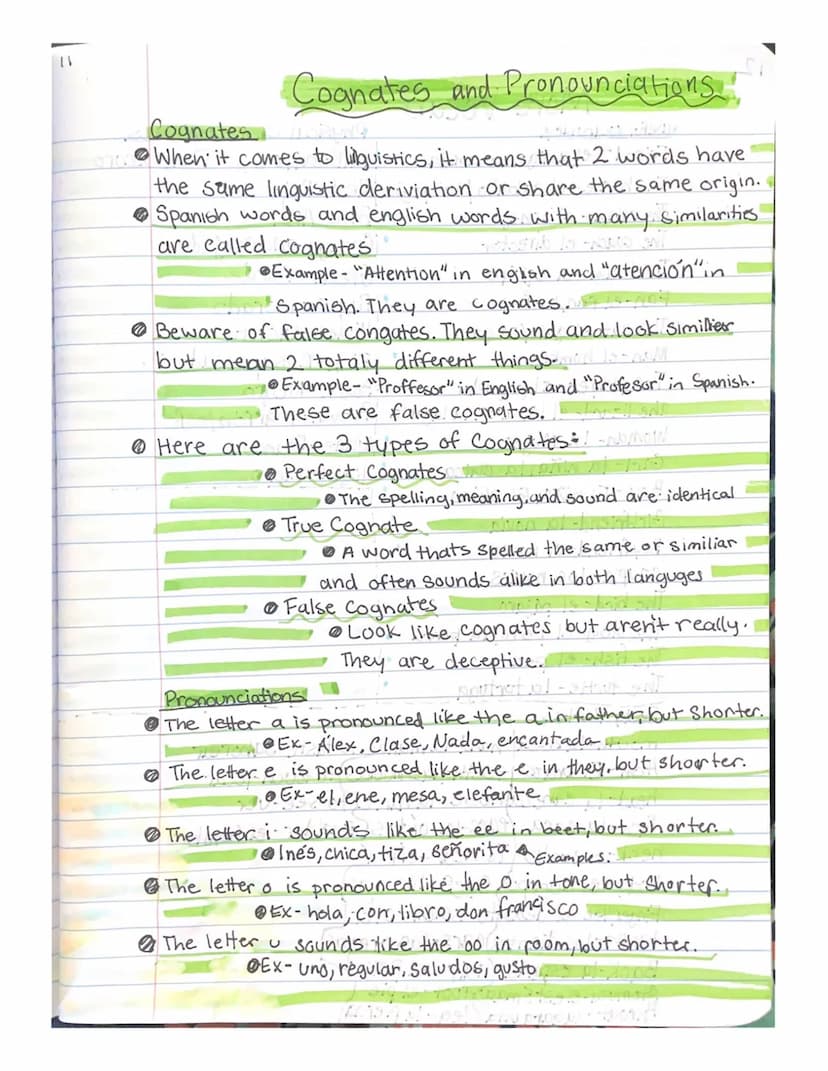 11
Cognates and Pronounciations
Cognates
When it comes to linguistics, it means that 2 words have
the same linguistic deriviation or share the same origin.
Spanish words and english words with many similarities
are called Cognates
Example - "Attention" in english and "atención" in
Spanish. They are cognates.
Beware of false congates. They sound and look similier
but mean 2 totaly different things.
Example - "Proffesor" in English and "Profesor" in Spanish.
These are false cognates.
Here are the 3 types of Cognates:
Perfect Cognates
The spelling, meaning, and sound are identical
True Cognate
A word thats spelled the same or similiar
and often sounds alike in both languges
False Cognates
Look like cognates but aren't really.
They are deceptive.
Pronounciations
The letter a is pronounced like the a in father, but Shorter.
Ex - Álex, Clase, Nada, encantada
The letter e is pronounced like the e in they, but shorter.
Ex - el, ene, mesa, elefante
The letter i sounds like the ee in beet, but shorter.
Inés, chica, tiza, señorita Examples.
The letter o is pronounced like the o in tone, but Shorter.
Ex - hola, con, libro, don francisco
The letter u sounds like the oo in room, but shorter.
Ex - uno, regular, saludos, gusto